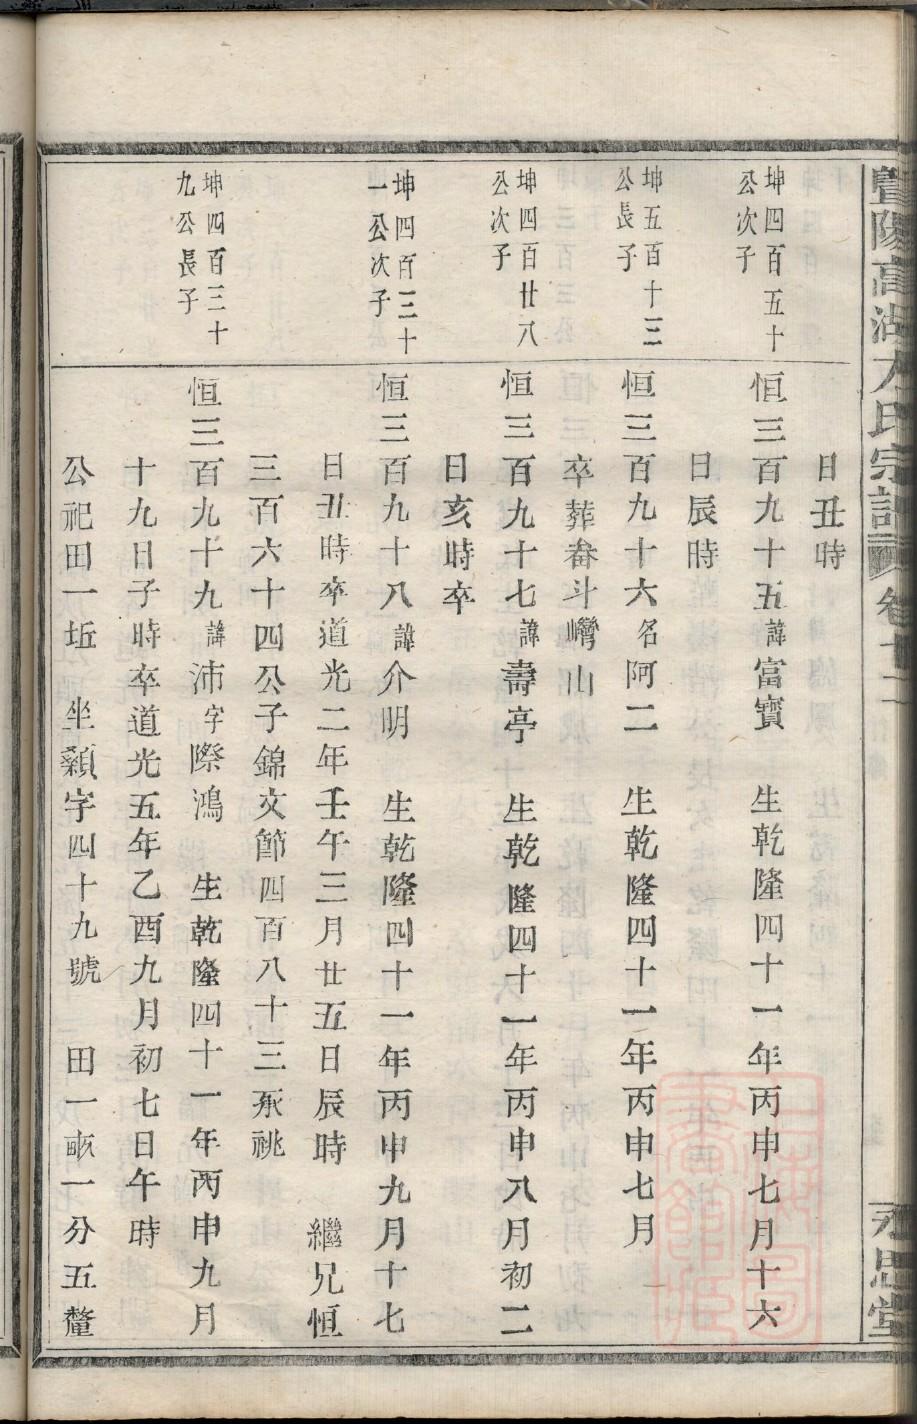 暨陽高湖方氏宗譜 卷十二 永思堂
日丑時
坤四百五十
公次子
恒三百九十五諱富寶 生乾隆四十一年丙申七月十六
日辰時
坤五百十三
公長子
恒三百九十六名阿二 生乾隆四十一年丙申七月
卒葬畚斗巒山
坤四百廿八
公次子
恒三百九十七諱壽亭 生乾隆四十一年丙申八月初二
日亥時卒
坤四百三十
一公次子
恒三百九十八諱介明 生乾隆四十一年丙申九月十七
日丑時卒道光二年壬午三月廿五日辰時 繼兄恒
三百六十四公子錦文節四百八十三承祧
坤四百三十
九公長子
恒三百九十九諱沛字際鴻 生乾隆四十一年丙申九月
十九日子時卒道光五年乙酉九月初七日午時
公祀田一坵 坐顙字四十九號 田一畝一分五釐